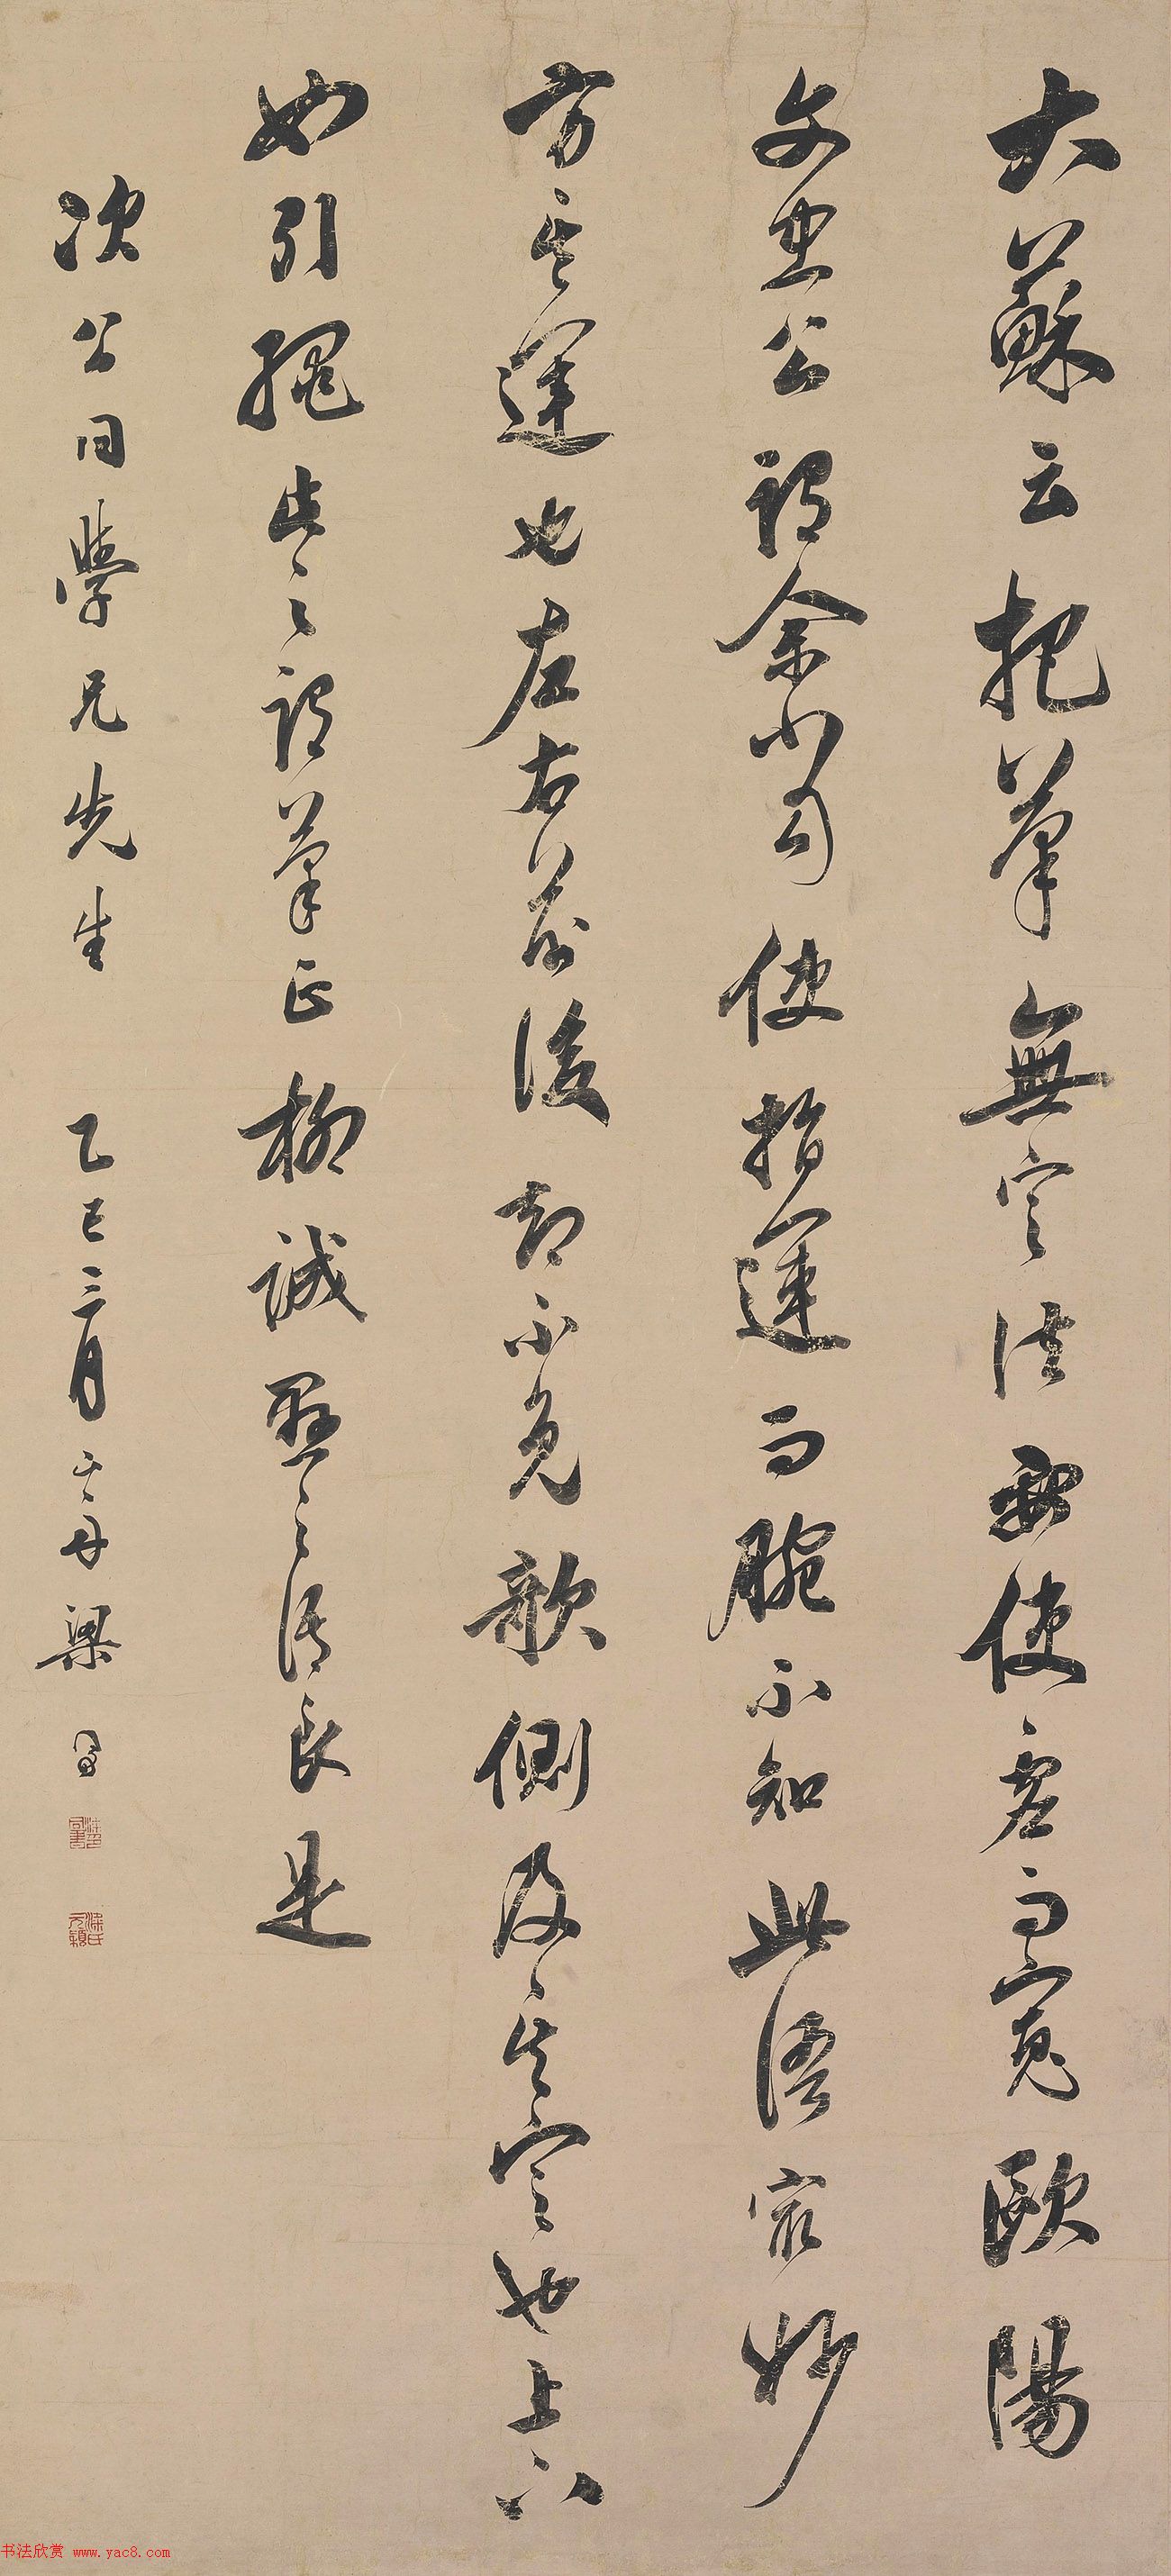 大蘇云把筆無定法要使虛而寬歐陽
文忠公謂余當使指運而腕不知此語最妙
方其運也左右前後却不免欹側及其定也上下
如引繩此之謂筆正柳誠懸之語良是
次公同學兄先生 乙巳三月 梁
书法欣赏 www.yac8.com